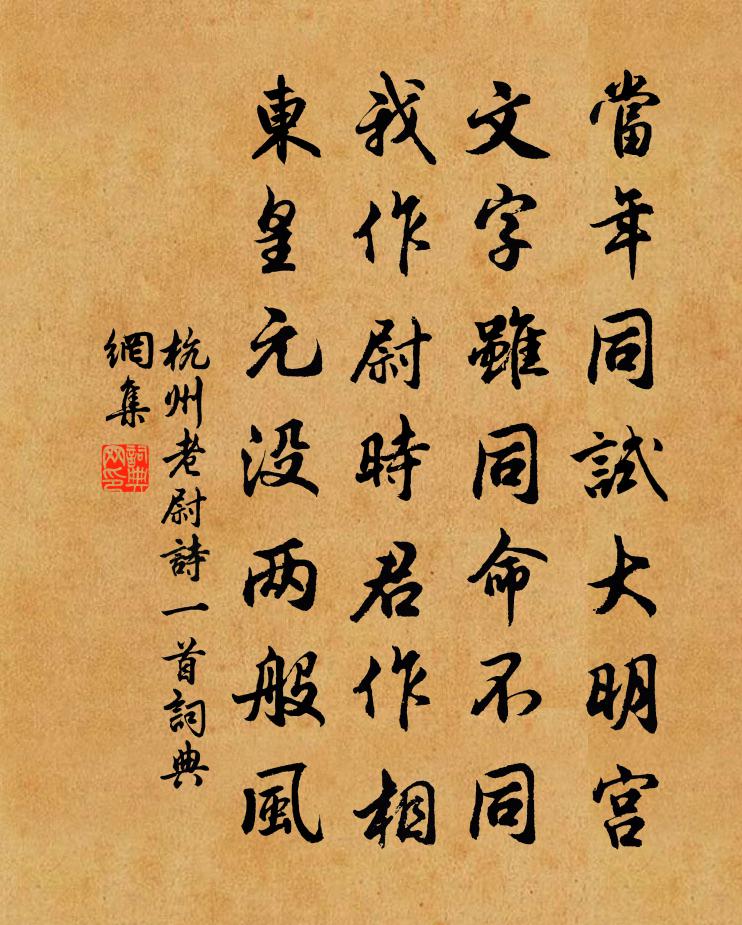 當年同試大明宮
文字雖同命不同
我作尉時君作相
東皇元没两般風
杭州老尉詩一首詞典
網集
詞典
网印